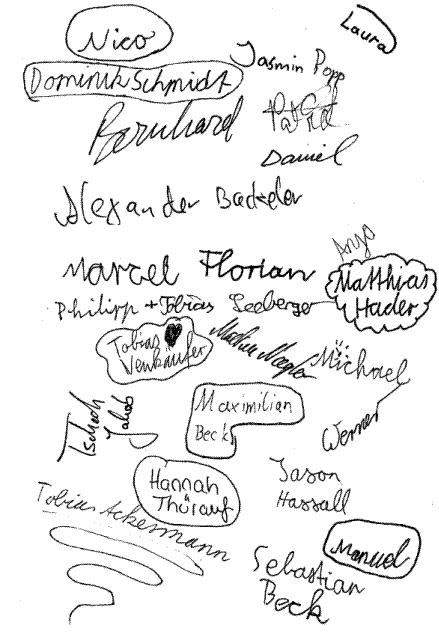 Laura
Nico
Jasmin Popp
Dominik Schmidt
Patrick
Bernhard
Daniel
Alexander
Anja
Marcel Florian
Matthias
Hader
Philipp + Tobias Seeberger
Tobias
Venkäufer
Michael
Maximilian
Beck
Werner
Jakob
Hannah
Thürauf
Jason
Hassall
Tobias Ackermann
Manuel
Sebastian
Beck